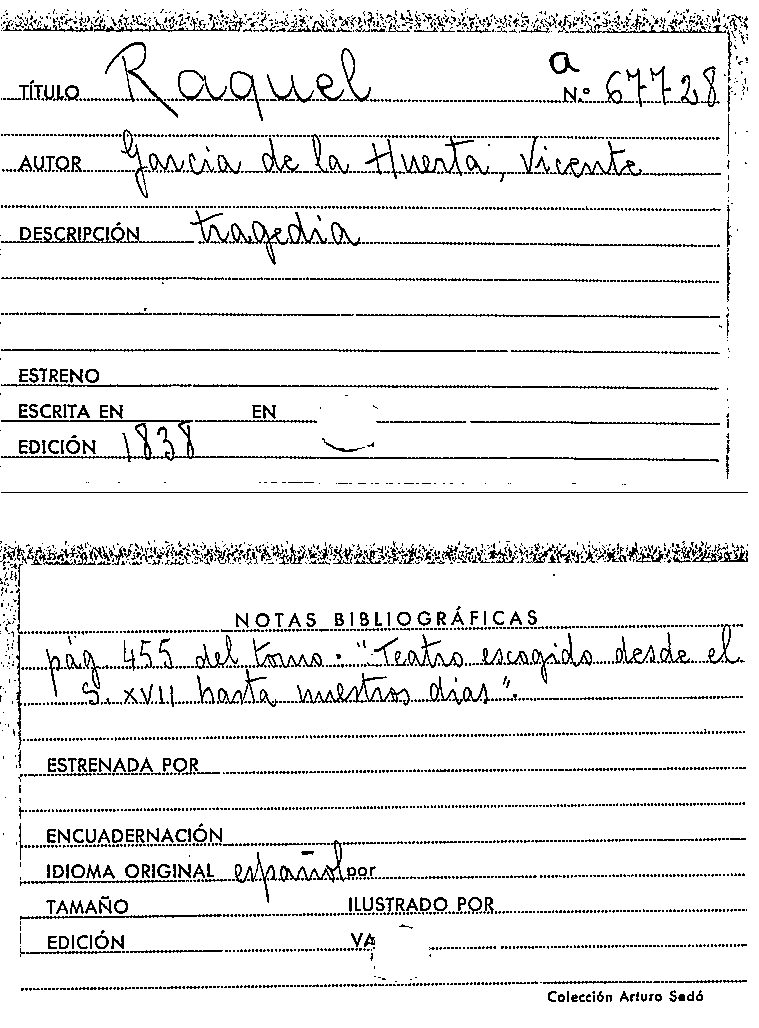 a
TÍTULO Raquel N.º 67728
AUTOR Garcia de la Huerta, Vicente
DESCRIPCIÓN tragedia
ESTRENO
ESCRITA EN EN
EDICIÓN 1838
NOTAS BIBLIOGRÁFICAS
pág 455 del tomo. "Teatro escogido desde el
S. XVII hasta nuestros dias".
ESTRENADA POR
ENCUADERNACIÓN
IDIOMA ORIGINAL español por
TAMAÑO ILUSTRADO POR
EDICIÓN VA
Colección Arturo Sedó